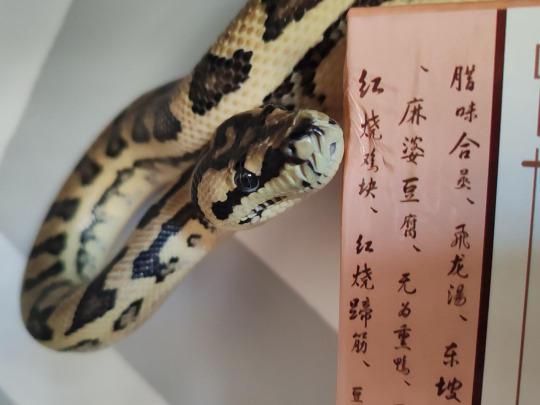 腊味合蒸、飛龙湯、东坡
、麻婆豆腐、无为熏鸭、
红烧鸡块、红烧蹄筋、豆